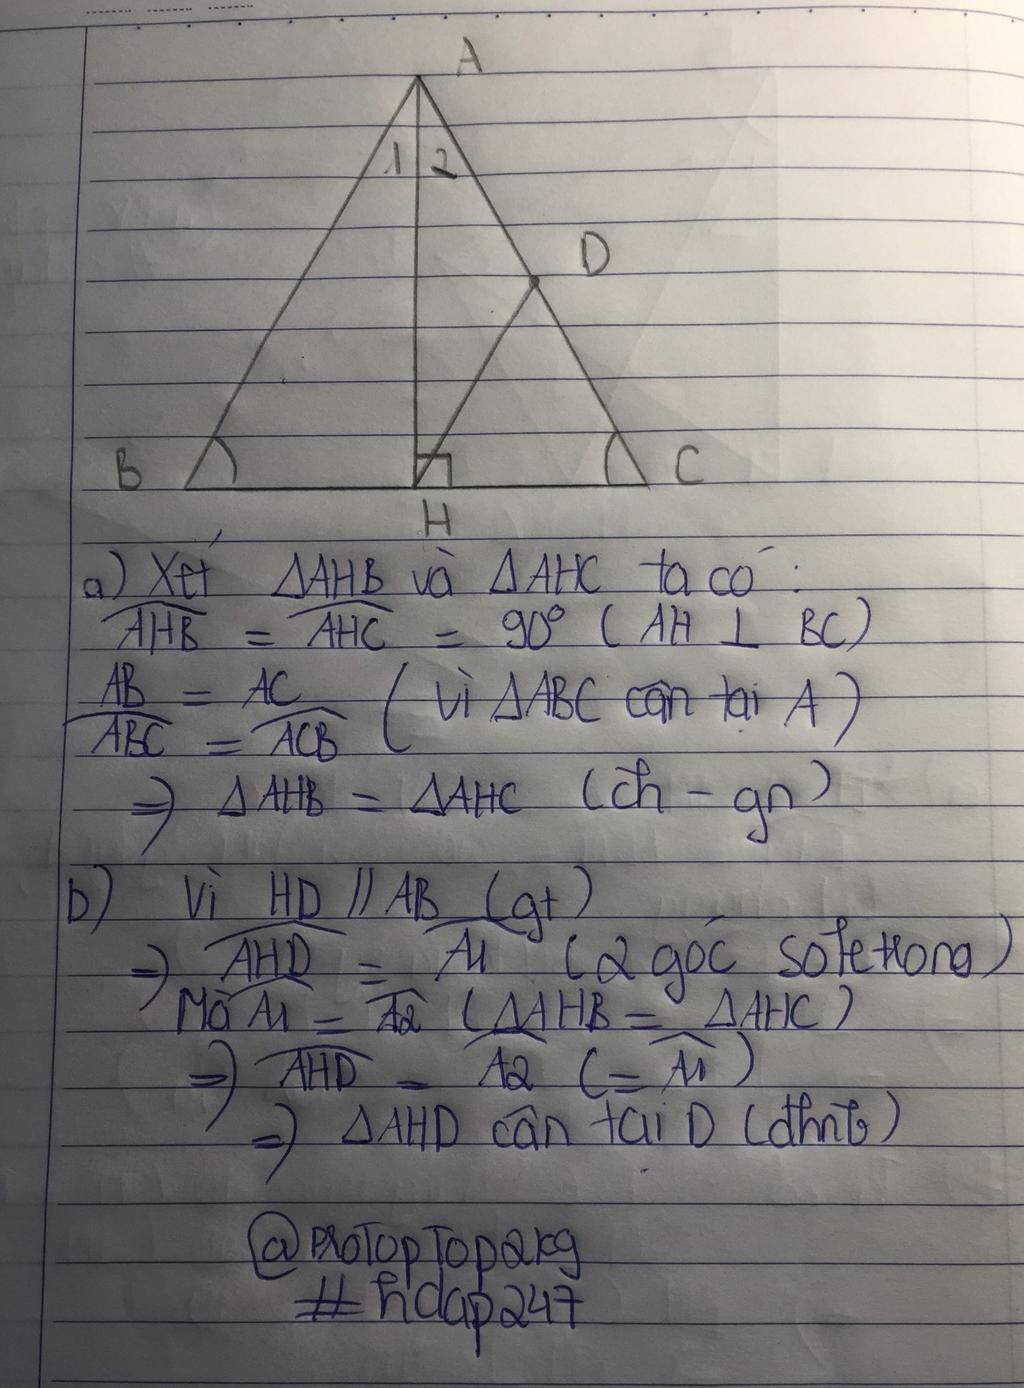 A
1 2
D
B
C
H
a) Xét ΔAHB và ΔAHC ta có :
AHB = AHC = 90° ( AH ⊥ BC)
AB = AC
ABC = ACB ( Vì ΔABC cân tại A )
=> ΔAHB = ΔAHC (ch - gn)
b) Vì HD // AB (gt)
=> AHD = A1 (2 góc so le trong)
Mà A1 = A2 (ΔAHB = ΔAHC)
=> AHD = A2 (= A1)
=> ΔAHD cân tại D (dhnb)
@ProTopTop2kg
#hdap247